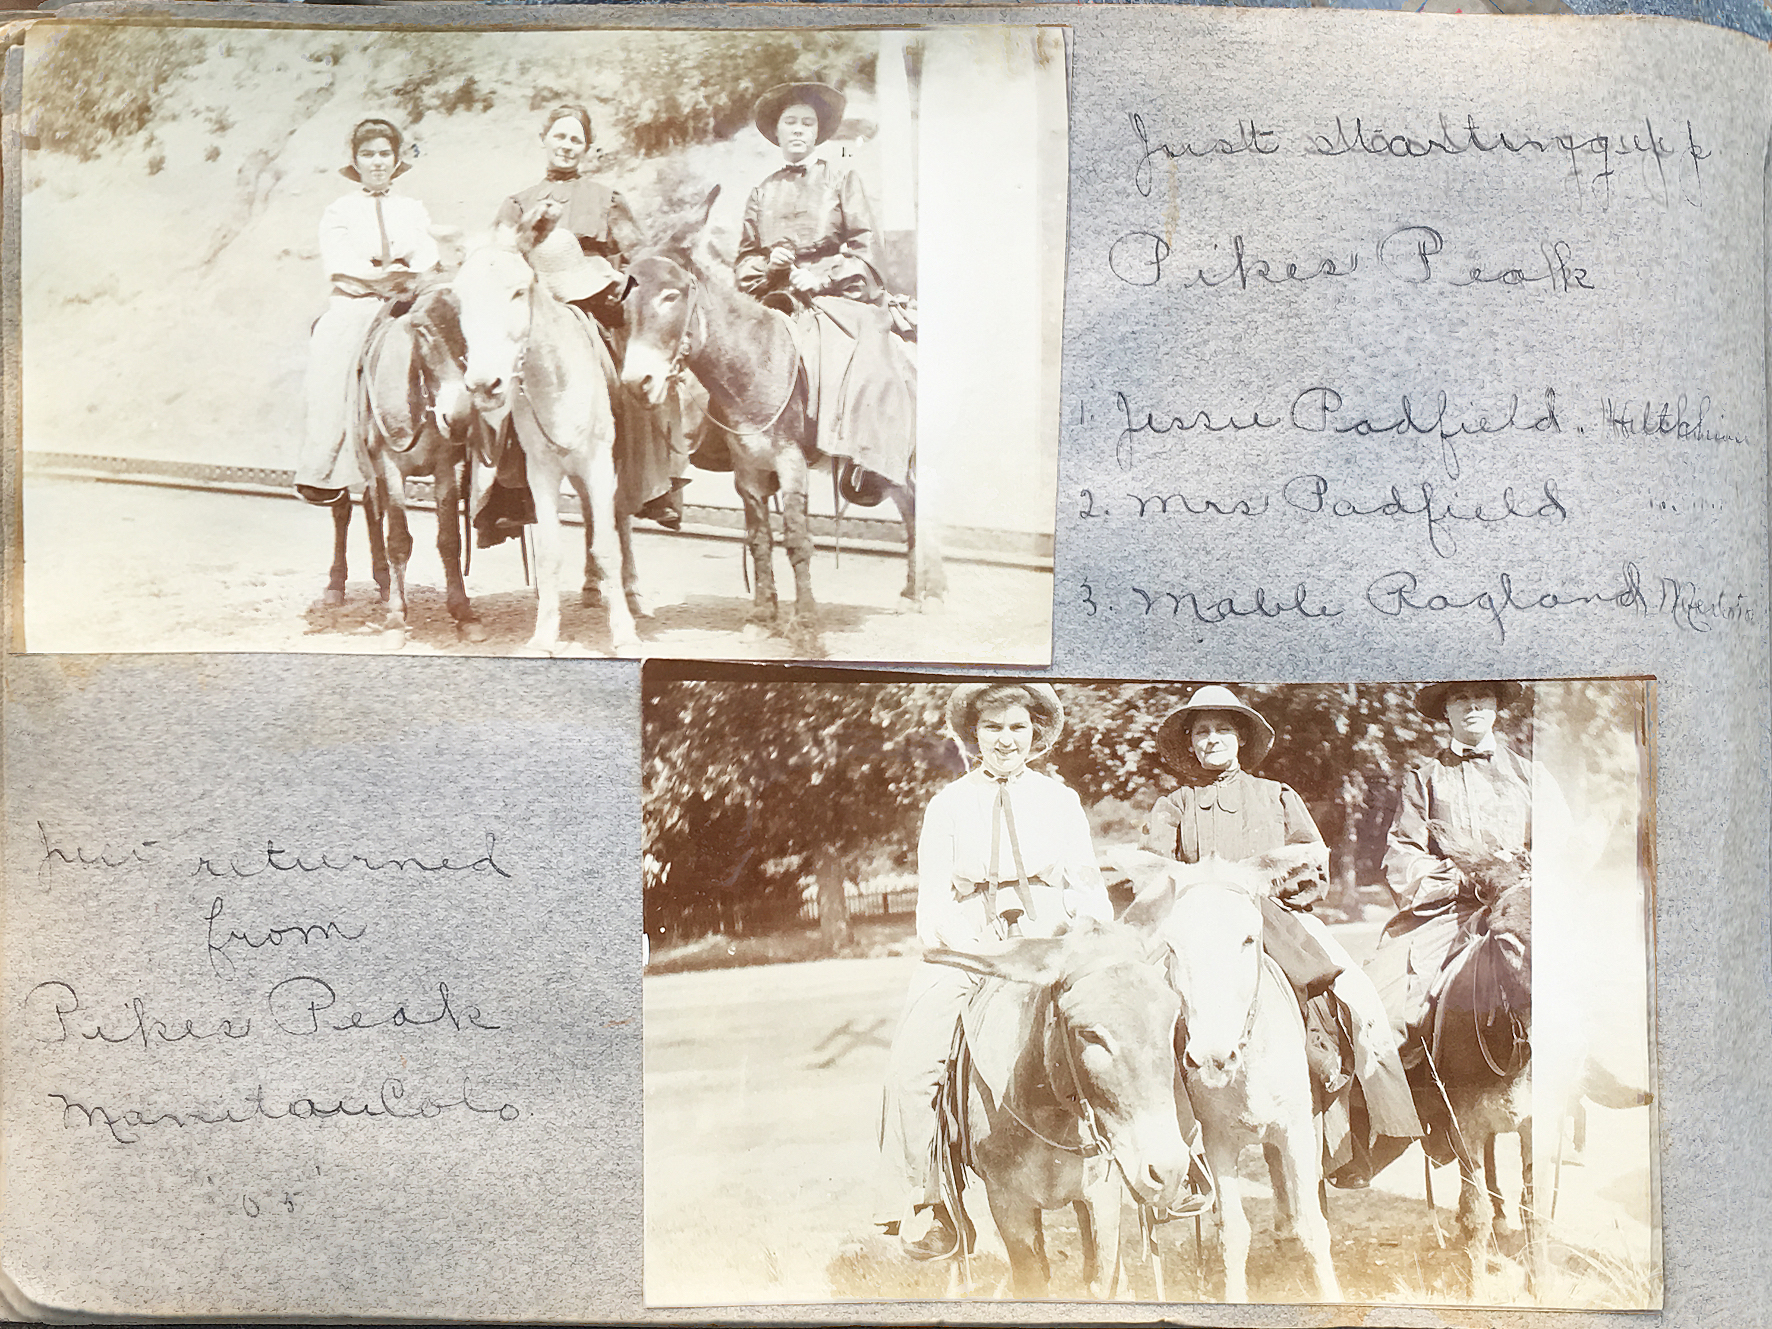 Just Starting up
Pikes Peak
1. Jessie Padfield.
2. Mrs Padfield " "
3. Mable Ragland
1.
3
Just returned
from
Pikes Peak
Manitou Colo
'05